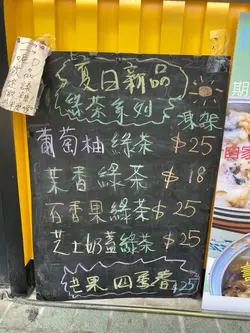 夏日新品
綠茶系列
葡萄柚綠茶 $25
茉香綠茶 $18
百香果綠茶 $25
芝士奶蓋綠茶 $25
芒果四蛋卷 $25
期